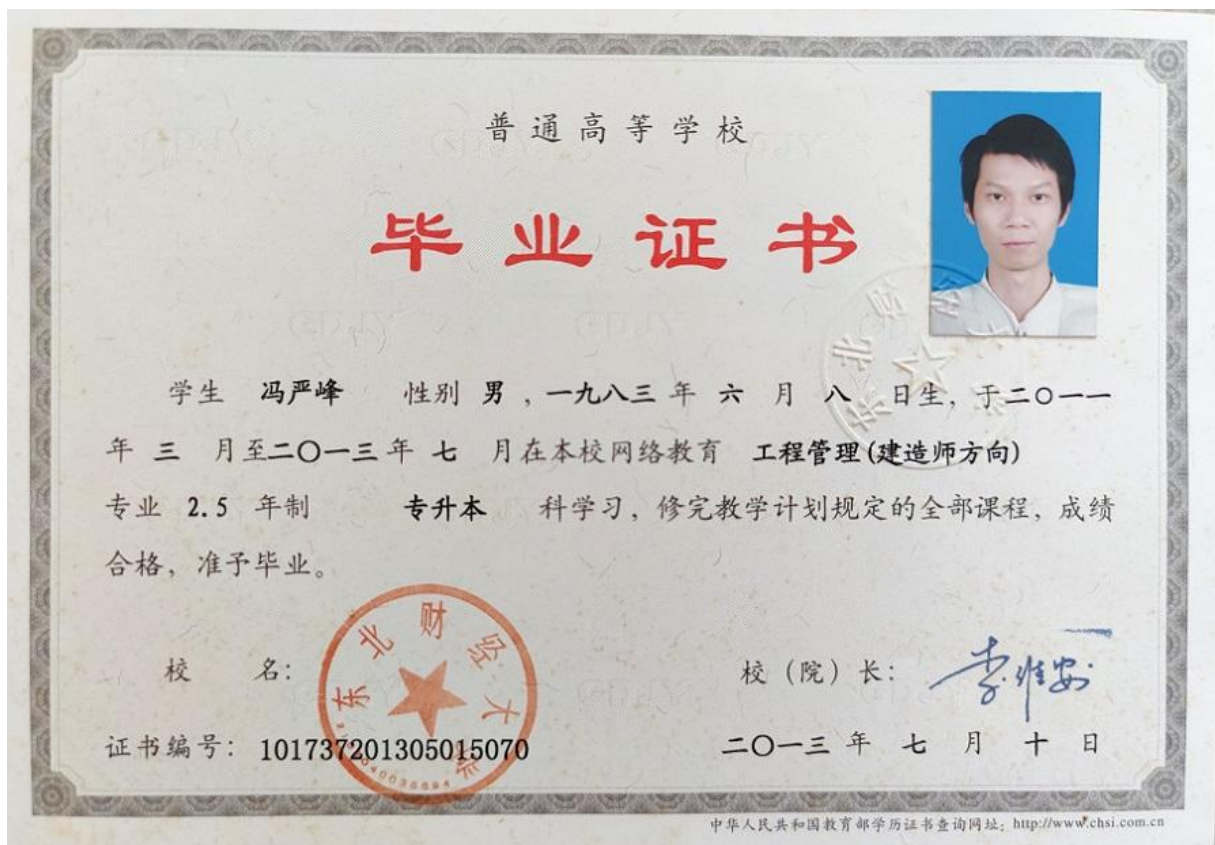 普通高等学校
毕业证书
学生 冯严峰 性别 男 ,一九八三 年 六 月 八 日生, 于二〇一一
年 三 月至二〇一三年 七 月在本校网络教育 工程管理(建造师方向)
专业 2.5 年制 专升本 科学习, 修完教学计划规定的全部课程, 成绩
合格, 准予毕业。
东北财经大学
校 名:
校(院)长: 李维安
证书编号: 101737201305015070
二〇一三 年 七 月 十 日
中华人民共和国教育部学历证书查询网址: http://www.chsi.com.cn